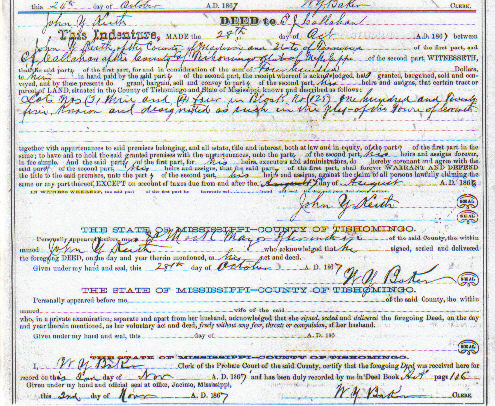 this 26th day of October A.D. 1867 W Y Baker CLERK.
John Y Keith DEED to C J Callahan
This Indenture, MADE the 28th day of Oct A.D. 1867 between
John Y Keith of the County of and State of of the first part, and
C J Callahan of the County of Tishomingo State of of the second part, WITNESSETH,
that the said party of the first part, for and in consideration of the sum of Hundred Dollars,
to him in hand paid by the said party of the second part, the receipt whereof is acknowledged, has granted, bargained, sold and con-
veyed, and by these presents do grant, bargain, sell and convey to said party of the second part, his heirs and assigns, that certain tract or
parcel of LAND, situated in the County of Tishomingo and State of Mississippi known and described as follows:
Lots Nos (3) three and (4) four in Block No (125) One hundred and twenty
five known and designated as such in the plan of the Town of Corinth
together with appurtenances to said premises belonging, and all estate, title and interest, both at law and in equity, of the party of the first part in
same; to have and to hold the said granted premises with the appurtenances, unto the party of the second part, his heirs and assigns forever,
in fee simple. And the said party of the first part, for his heirs, executors and administrators, do hereby covenant and agree with the
said party of the second part, his heirs and assigns, that the said party of the first part, shall forever WARRANT AND DEFEND
the title to the said premises, unto the party of the second part, his heirs and assigns, against the claim of all persons lawfully claiming the
same or any part thereof, EXCEPT on account of taxes due from and after the day of August A.D. 186
IN WITNESS WHEREOF, the said part of the first part
John Y Keith SEAL
SEAL
THE STATE OF MISSISSIPPI—COUNTY OF TISHOMINGO.
Personally appeared before me Mayor of the said County, the within
named John Y Keith who acknowledged that he signed, sealed and delivered
the foregoing DEED, on the day and year therein mentioned, as his act and deed.
Given under my hand and seal, this 28th day of October A.D. 1867
W Y Baker SEAL
THE STATE OF MISSISSIPPI—COUNTY OF TISHOMINGO.
Personally appeared before me of the said County, the within
named wife of the said
who, in a private examination, separate and apart from her husband, acknowledged that she signed, sealed and delivered the foregoing Deed, on the day
and year therein mentioned, as her voluntary act and deed, freely without any fear, threats or compulsion, of her husband.
Given under my hand and seal, this day of A.D. 186
SEAL
THE STATE OF MISSISSIPPI—COUNTY OF TISHOMINGO.
I, W Y Baker Clerk of the Probate Court of the said County, certify that the foregoing Deed was received here for
record on this 2nd day of Nov A.D. 1867 and has been duly recorded by me in Deed Book page 106
Given under my hand and official seal at office, Jacinto, Mississippi,
this 2nd day of Nov A.D. 1867 W Y Baker CLERK.